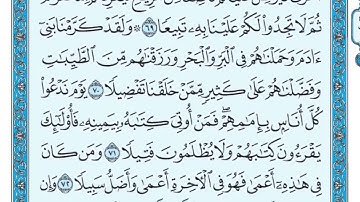 ثُمَّ لَا تَجِدُوا۟ لَكُمْ عَلَيْنَا بِهِۦ تَبِيعًا ٦٩ ۞ وَلَقَدْ كَرَّمْنَا بَنِىٓ
ءَادَمَ وَحَمَلْنَٰهُمْ فِى ٱلْبَرِّ وَٱلْبَحْرِ وَرَزَقْنَٰهُم مِّنَ ٱلطَّيِّبَٰتِ
وَفَضَّلْنَٰهُمْ عَلَىٰ كَثِيرٍ مِّمَّنْ خَلَقْنَا تَفْضِيلًا ٧٠ يَوْمَ نَدْعُوا۟
كُلَّ أُنَاسٍۭ بِإِمَٰمِهِمْ ۖ فَمَنْ أُوتِىَ كِتَٰبَهُۥ بِيَمِينِهِۦ فَأُو۟لَٰٓئِكَ
يَقْرَءُونَ كِتَٰبَهُمْ وَلَا يُظْلَمُونَ فَتِيلًا ٧١ وَمَن كَانَ
فِى هَٰذِهِۦٓ أَعْمَىٰ فَهُوَ فِى ٱلْءَاخِرَةِ أَعْمَىٰ وَأَضَلُّ سَبِيلًا ٧٢ وَإِن